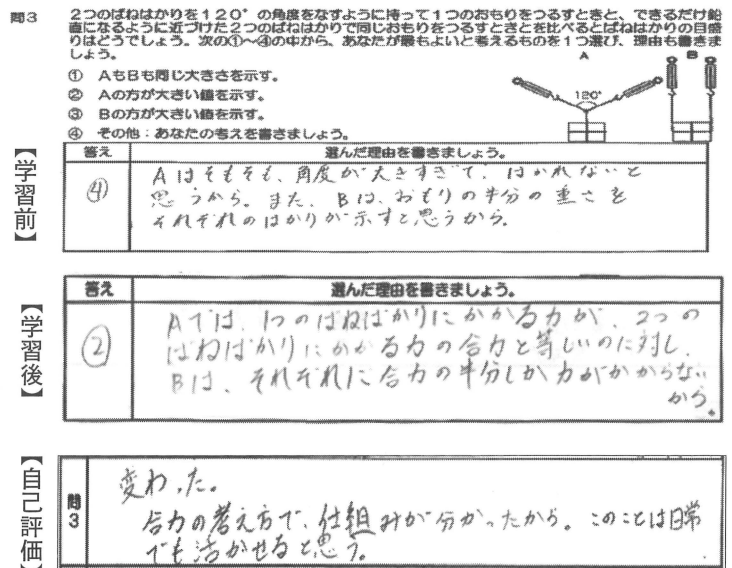 問3 2つのばねはかりを120°の角度をなすように持って1つのおもりをつるすときと、できるだけ鉛
直になるように近づけた2つのばねはかりで同じおもりをつるすときとを比べるとばねはかりの目盛
りはどうでしょう。次の①~④の中から、あなたが最もよいと考えるものを1つ選び、理由も書きま
しょう。
A B
120°
① AもBも同じ大きさを示す。
② Aの方が大きい値を示す。
③ Bの方が大きい値を示す。
④ その他:あなたの考えを書きましょう。
【学習前】
答え 選んだ理由を書きましょう。
④ Aはそもそも、角度が大きすぎて、はかれないと
思うから。また、Bは、おもりの半分の重さを
それぞれのはかりが示すと思うから。
【学習後】
答え 選んだ理由を書きましょう。
② Aでは、1つのばねばかりにかかる力が、2つの
ばねばかりにかかる力の合力と等しいのに対し、
Bは、それぞれに合力の半分しか力がかからない
から。
【自己評価】
問3 変わった。
合力の考え方で、仕組みが分かったから。このことは日常
でも活かせると思う。